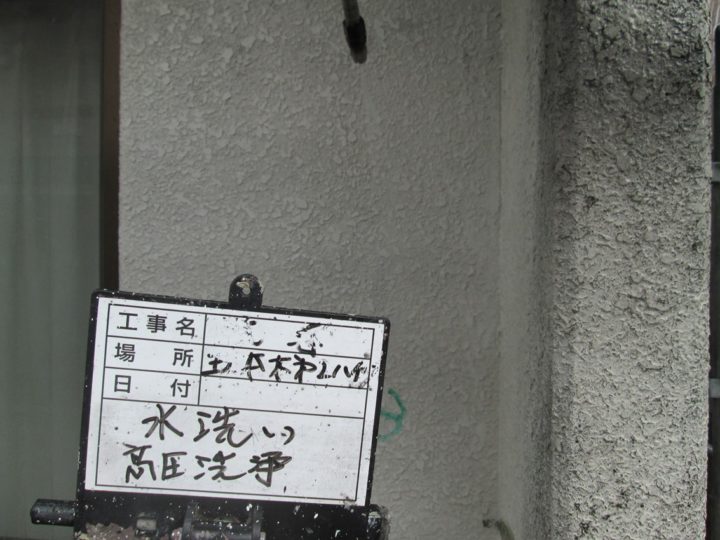 工事名
場所
日付
水洗い
高圧洗浄